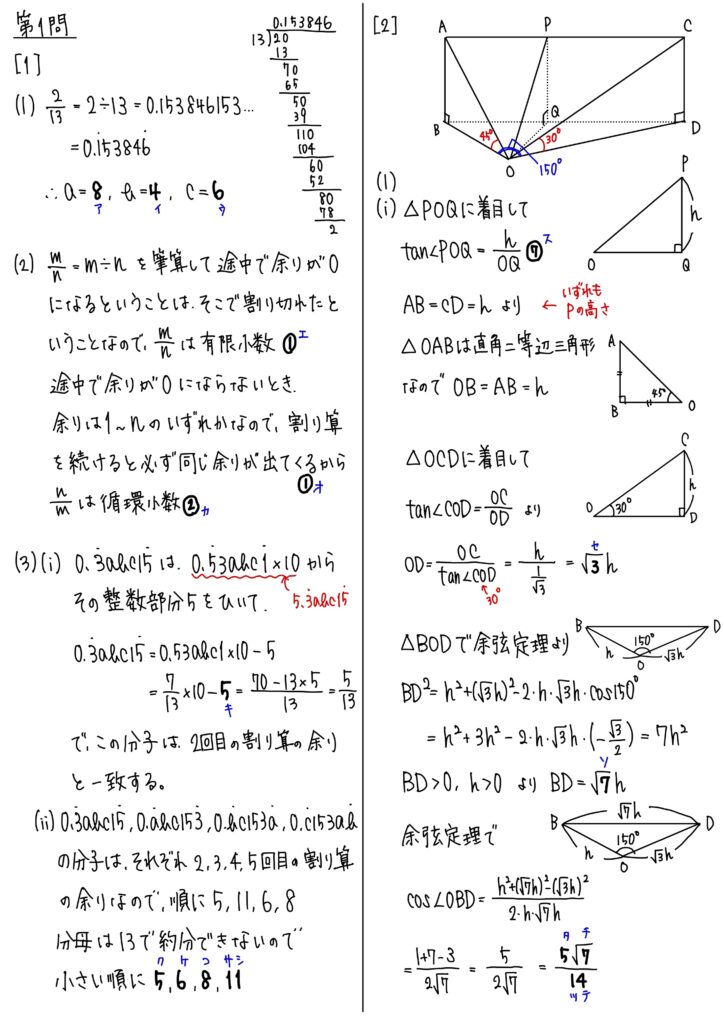 第1問
[1]
0.153846
13)20
13
70
65
50
39
110
104
60
52
80
78
2
(1) 2/13 = 2÷13 = 0.153846153…
= 0.1̇53846̇
∴ a=8, b=4, c=6
ア イ ウ
(2) m/n = m÷n を筆算して途中で余りが0
になるということは、そこで割り切れたと
いうことなので、m/n は有限小数 ① エ
途中で余りが0にならないとき、
余りは1~nのいずれかなので、割り算
を続けると必ず同じ余りが出てくるから
① オ
n/m は循環小数 ② カ
(3)(i) 0.3̇abc15̇ は、0.5̇3abc1̇×10 から
その整数部分5をひいて、 5.3̇abc15̇
0.3̇abc15̇ = 0.53abc1×10-5
= 7/13×10-5 = (70-13×5)/13 = 5/13
キ
で、この分子は、2回目の割り算の余り
と一致する。
(ii) 0.3̇abc15̇, 0.ȧbc153̇, 0.ḃc153ȧ, 0.ċ153aḃ
の分子は、それぞれ 2,3,4,5回目の割り算
の余りなので、順に 5, 11, 6, 8
分母は13で約分できないので
ク ケ コ サシ
小さい順に 5, 6, 8, 11
[2]
A P C
B Q D
45° 30°
O 150°
(1)
(i) △POQに着目して
tan∠POQ = h/OQ ⑦ ス
P
h
O Q
AB=CD=h より ← いずれも
Pの高さ
△OABは直角二等辺三角形
なので OB=AB=h
A
45°
B O
△OCDに着目して
tan∠COD = OC/OD より
C
h
O 30° D
OD = OC/tan∠COD = h/(1/√3) = √3h
30°
セ
△BODで余弦定理より
B 150° D
h O √3h
BD²=h²+(√3h)²-2·h·√3h·cos150°
=h²+3h²-2·h·√3h·(-√3/2)=7h²
ソ
BD>0, h>0 より BD=√7h
余弦定理で
√7h
B 150° D
h O √3h
cos∠OBD = (h²+(√7h)²-(√3h)²)/(2·h·√7h)
= (1+7-3)/(2√7) = 5/(2√7) = 5√7/14
タ チ
ツテ